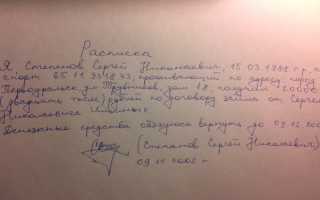 Расписка
Я Степанов Сергей Николаевич, 15.03.1898 г.р.
спорт 65 11 951873, проживающий по адресу город
Первоуральск ул Трубников, дом 18, получил 20000
(двадцать тысяч) рублей по договору займа от Сергея
Николаевича
Денежные средства обязуюсь вернуть до 09.12.200
(Степанов Сергей Николаевич)
09.11.2002 г